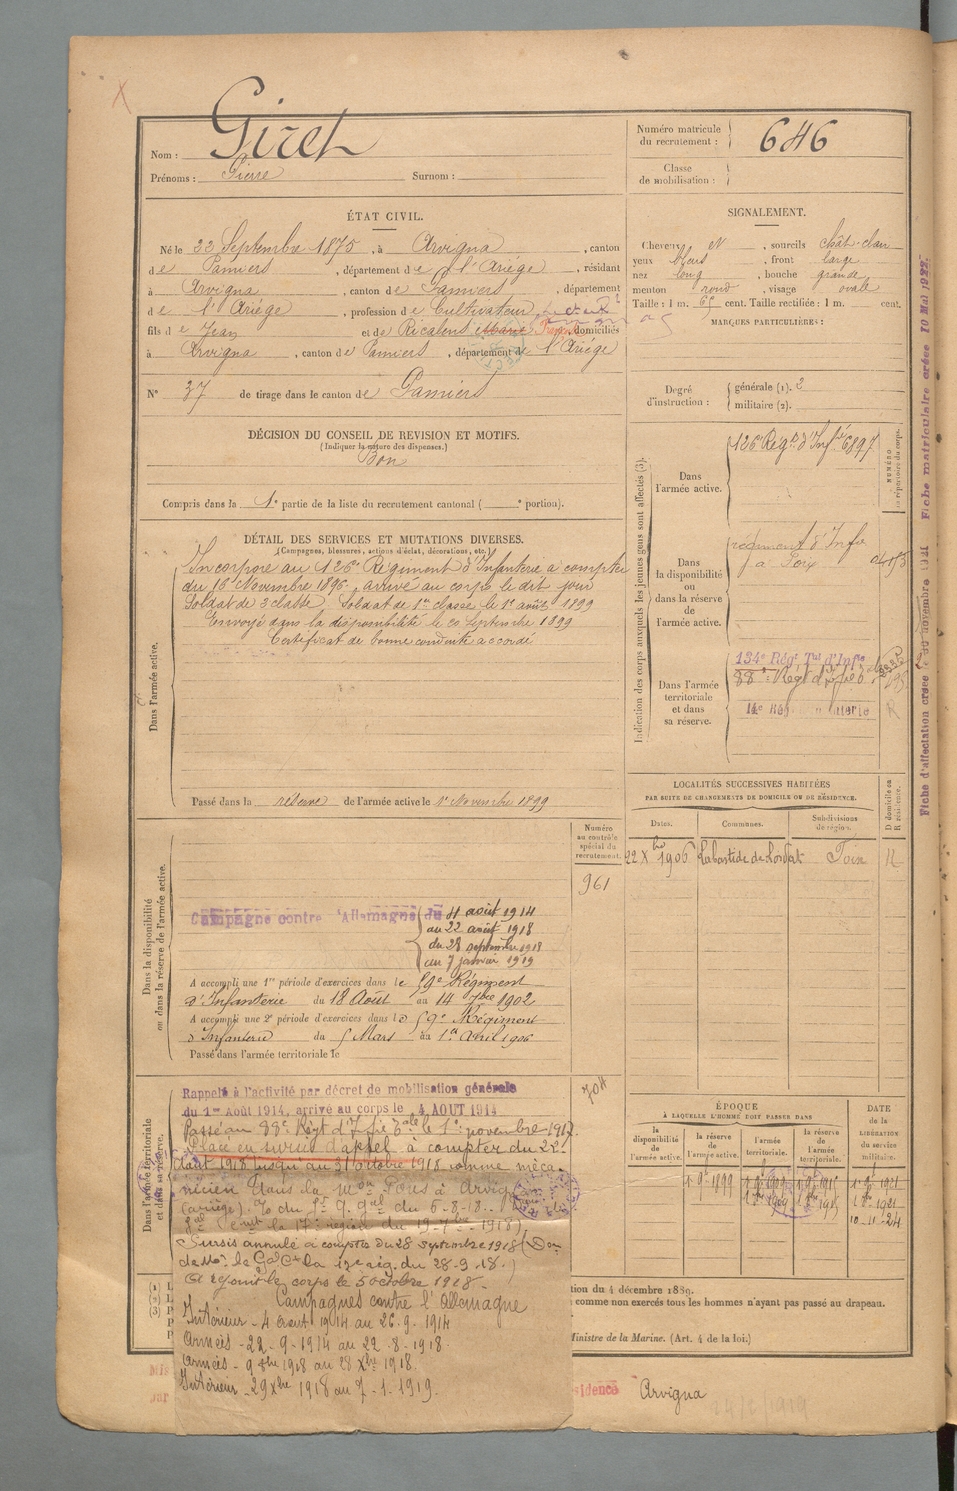 Giret
Nom :
Prénoms : Pierre Surnom :
Numéro matricule
du recrutement : 646
Classe
de mobilisation :
ÉTAT CIVIL.
Né le 22 Septembre 1875, à Arvigna, canton
de Pamiers, département de l'Ariège, résidant
à Arvigna, canton de Pamiers, département
de l'Ariège, profession de Cultivateur
fils de Jean et de Ricalens Marie domiciliés
à Arvigna, canton de Pamiers, département de l'Ariège
N° 37 de tirage dans le canton de Pamiers
DÉCISION DU CONSEIL DE REVISION ET MOTIFS.
(Indiquer la nature des dispenses.)
Bon
Compris dans la 1e partie de la liste du recrutement cantonal ( e portion).
SIGNALEMENT.
Cheveux et, sourcils chât-clair
yeux bleus, front large
nez long, bouche grande
menton rond, visage ovale
Taille : 1 m. cent. Taille rectifiée : 1 m. cent.
MARQUES PARTICULIÈRES :
Degré
d'instruction :
générale (1). 2
militaire (2).
DÉTAIL DES SERVICES ET MUTATIONS DIVERSES.
(Campagnes, blessures, actions d'éclat, décorations, etc.)
Dans l'armée active.
Incorporé au 126e Régiment d'Infanterie à compter
du 16 Novembre 1896, arrivé au corps le dit jour
Soldat de 2e classe, Soldat de 1re classe le 1er août 1899
Envoyé dans la disponibilité le 20 Septembre 1899
Certificat de bonne conduite accordé
Passé dans la réserve de l'armée active le 1er Novembre 1899
Indication des corps auxquels les jeunes gens sont affectés (3).
NUMÉRO
au répertoire du corps.
Dans
l'armée active.
126e Régt d'Infie 6897
Dans
la disponibilité
ou
dans la réserve
de
l'armée active.
régiment d'Infie
à Foix
Dans l'armée
territoriale
et dans
sa réserve.
134e Régt Tal d'Infie
88e Régt d'Infie
LOCALITÉS SUCCESSIVES HABITÉES
PAR SUITE DE CHANGEMENTS DE DOMICILE OU DE RÉSIDENCE.
Dates. Communes. Subdivisions
de région. D domicile ou
R résidence.
22 Xbre 1906 Labastide de Lordat Foix R
Dans la disponibilité
ou dans la réserve de l'armée active.
Numéro
au contrôle
spécial du
recrutement.
961
Campagne contre l'Allemagne du 4 août 1914
au 22 août 1918
du 28 septembre 1918
au 7 janvier 1919
A accompli une 1re période d'exercices dans le 59e Régiment
d'Infanterie du 18 Août au 14 7bre 1902
A accompli une 2e période d'exercices dans le 59e Régiment
d'Infanterie du 5 Mars au 1er Avril 1906
Passé dans l'armée territoriale le
Dans l'armée territoriale
et dans sa réserve.
Rappelé à l'activité par décret de mobilisation générale
du 1er Août 1914, arrivé au corps le 4 AOUT 1914
Passé au 88e Régt d'Infie Tale le 1er novembre 1917.
Placé en sursis d'appel à compter du 22
Août 1918 jusqu'au 31 octobre 1918 comme méca-
nicien dans la mon Pons à Arvigna
(Ariège).
la 17e région du
Sursis annulé à compter du 28 septembre 1918 (Don
de Mr. le Gal Ct la 17e rég. du 28-9-18.)
A rejoint le corps le 5 octobre 1918.
Campagnes contre l'Allemagne
Intérieur - 4 août 1914 au 26-9-1914
Armées - 22-9-1914 au 22-8-1918
Armées - 9 8bre 1918 au 28 Xbre 1918.
Intérieur - 29 Xbre 1918 au 7-1-1919.
ÉPOQUE
À LAQUELLE L'HOMME DOIT PASSER DANS
la
disponibilité
de l'armée active.
la réserve
de
l'armée active.
l'armée
territoriale.
la réserve
de
l'armée
territoriale.
DATE
de la
LIBÉRATION
du service
militaire.
10-11-24
tion du 4 décembre 1889.
comme non exercés tous les hommes n'ayant pas passé au drapeau.
Ministre de la Marine. (Art. 4 de la loi.)
sidence Arvigna
Fiche matriculaire créée 10 Mai 1922.